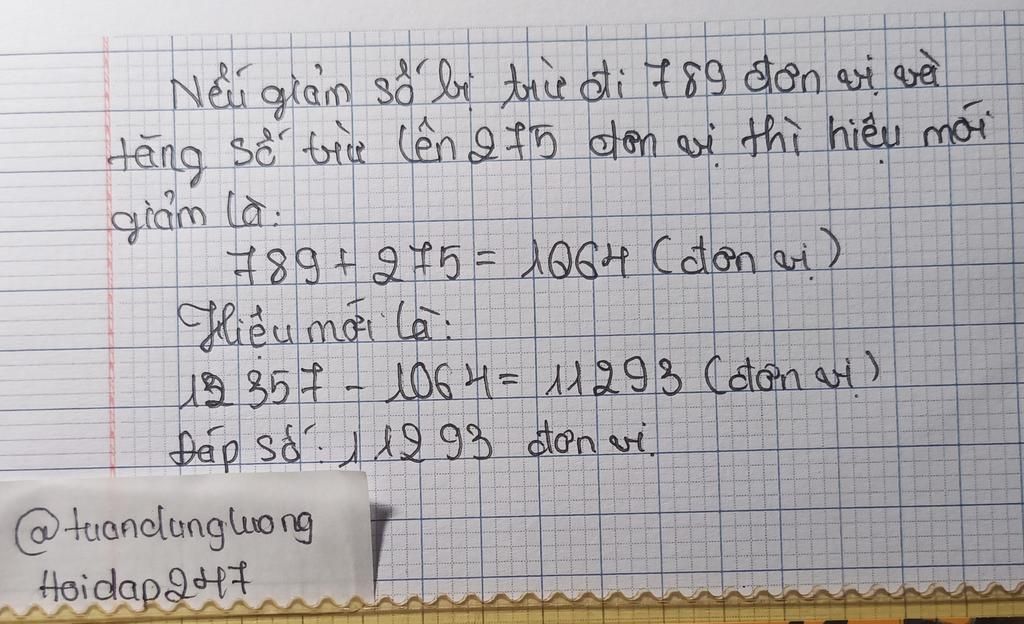 Nếu giảm số bị trừ đi 789 đơn vị và
tăng số trừ lên 275 đơn vị thì hiệu mới
giảm là:
789 + 275 = 1064 (đơn vị)
Hiệu mới là:
12357 - 1064 = 11293 (đơn vị)
Đáp số: 11293 đơn vị.
@tuandungluong
Hoidap247